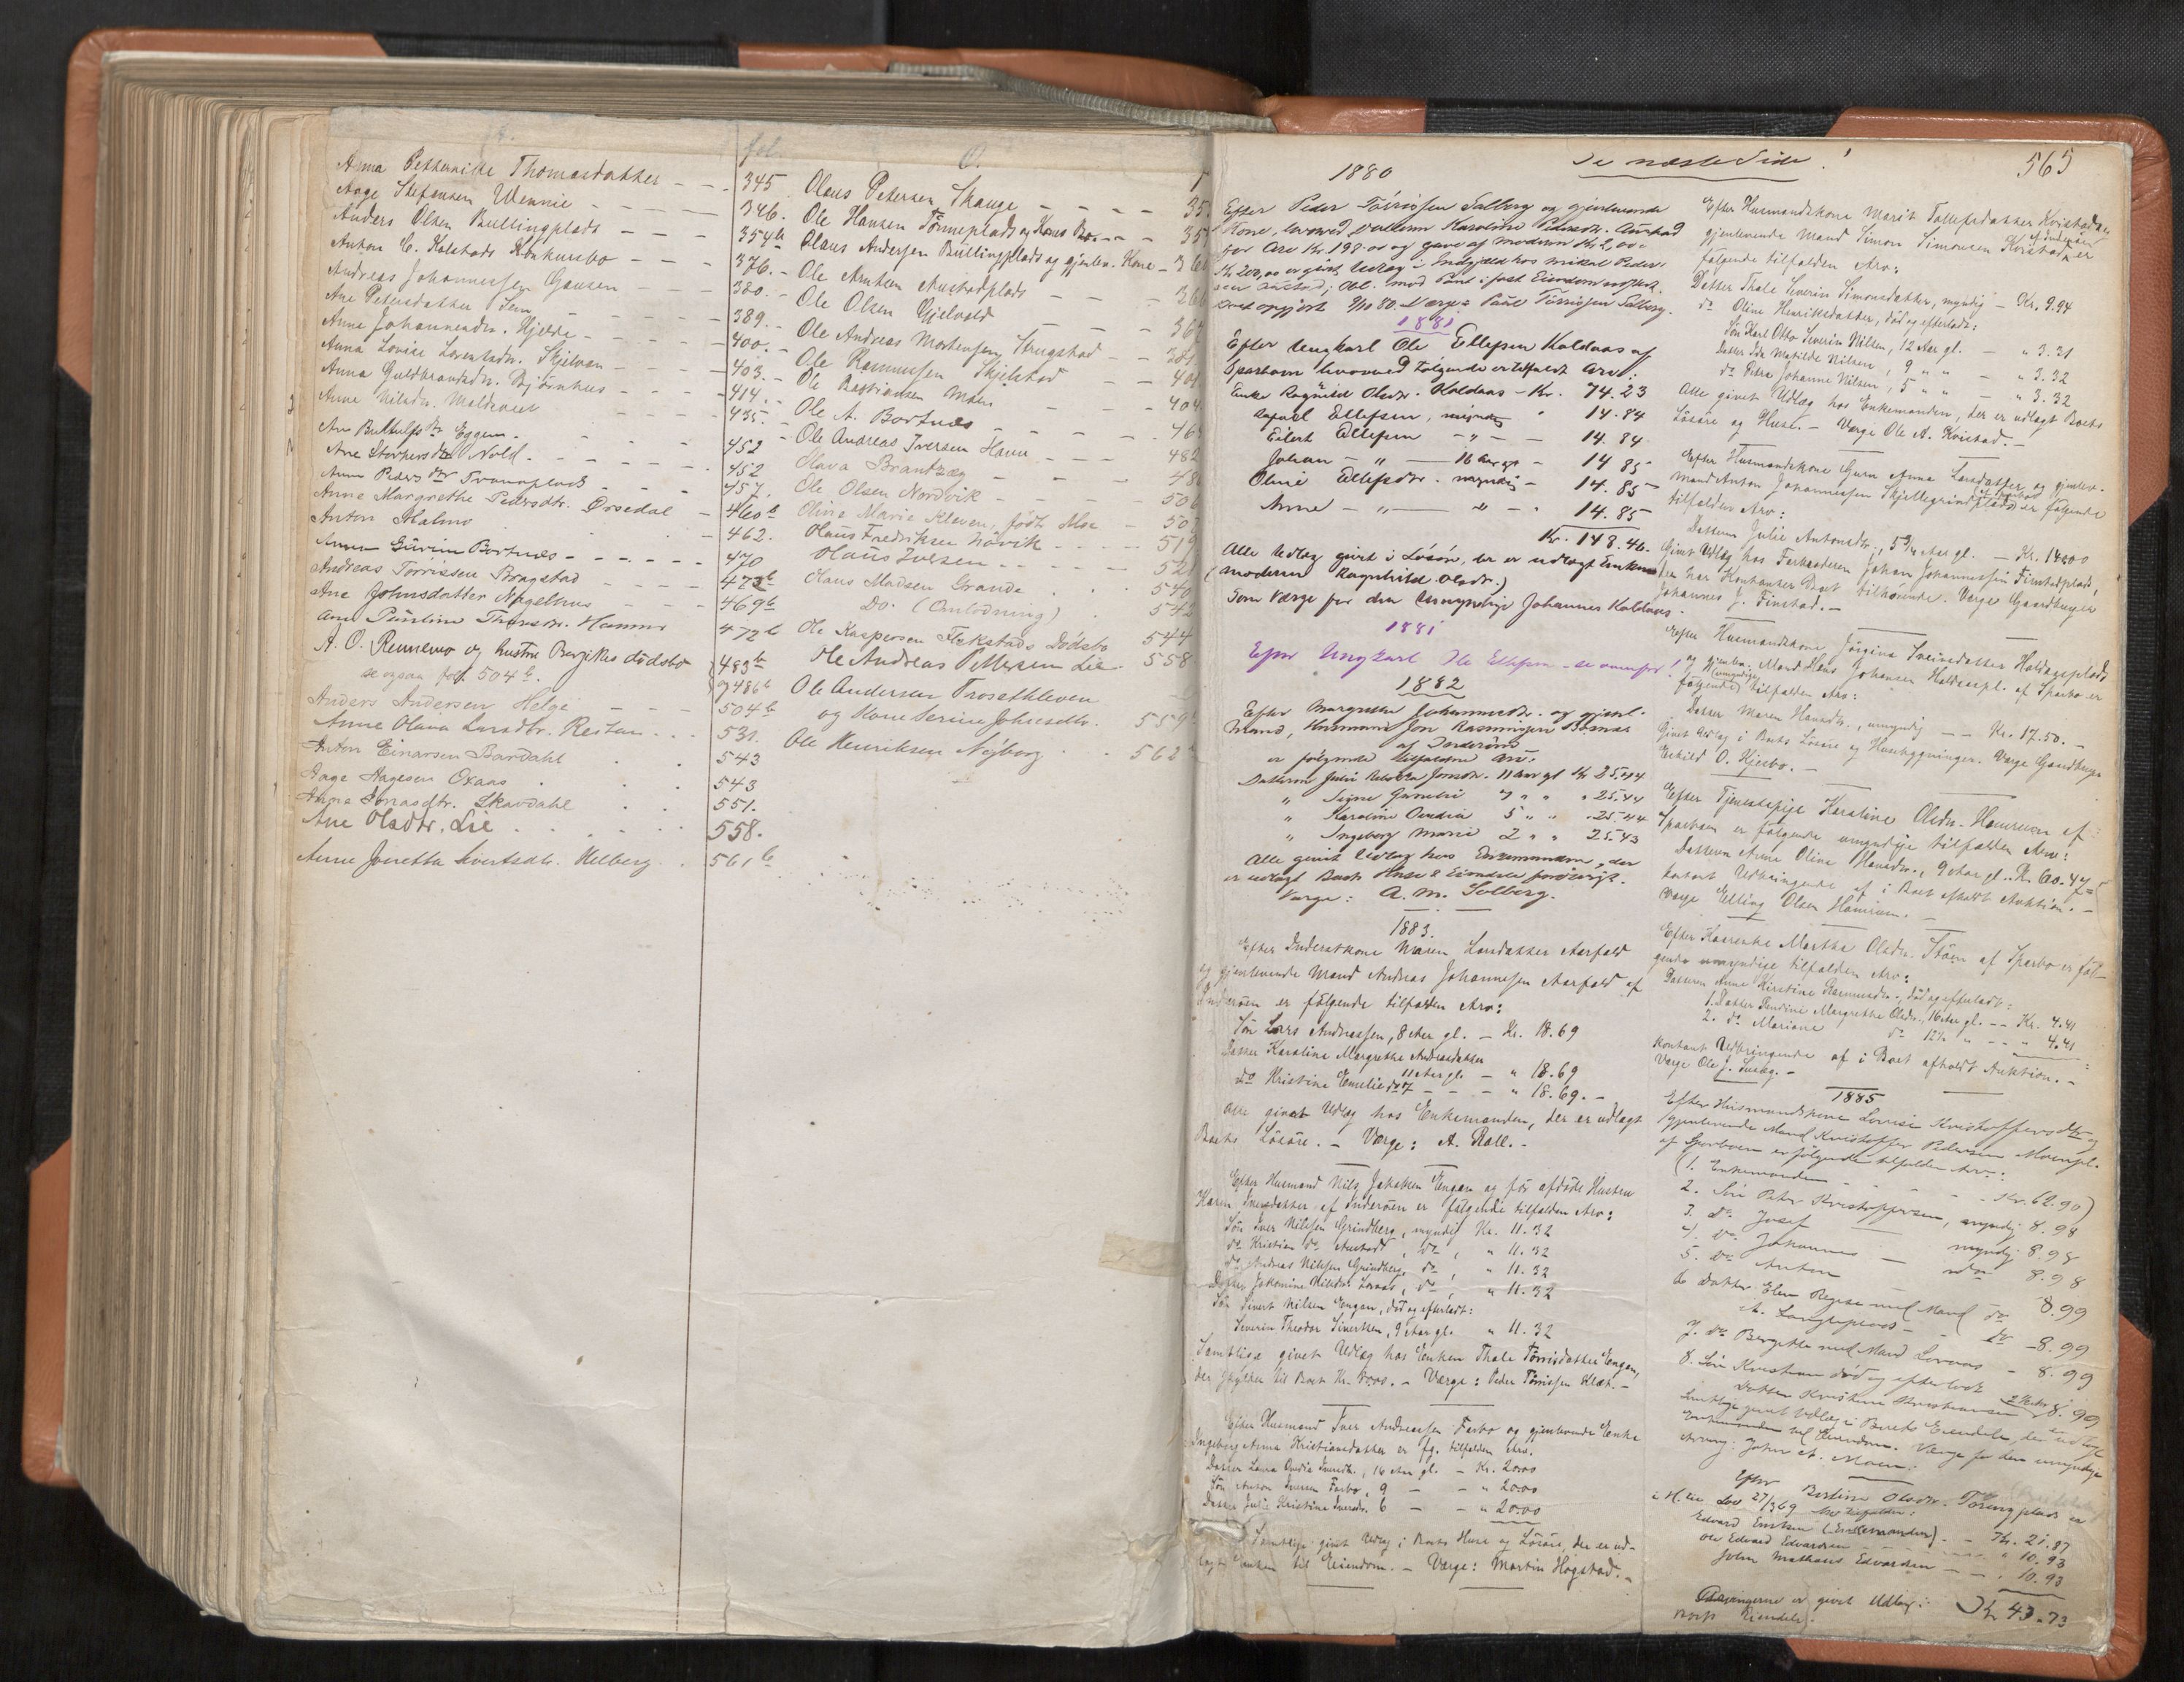 fol.
O.
Anna Petternille Thomasdatter - - - 345
Aage Stefansen Wennie - - - 346.
Anders Olsen Bullingplads - - - 354b
Anton C. Kolstads Konkursbo - - - 376.
Andreas Johannessen Gausen - - - 380.
Ane Petersdatter Sem - - - 389.
Anne Johannesdr. Hjelde - - - 400.
Anna Lovise Lorentsdr. Skjelvan - - - 403.
Anna Guldbrandsdr. Bjørnhus - - - 414.
Anne Nilsdr. - - - 435.
Ane Buttulfsdr Eggen - - - 452
Ane Nold - - - 452
Anne Pedersdtr Tranaplads - - - 457.
Anne Margrethe Pedersdtr.Ørsedal - 460b
Anton Malmo 462.
Anna Bortnæs - - - 470
Andreas Torrissen Bragstad - - - 473b
Ane Johnsdatter Nøgelhus - - - 469b
Ane Pauline Thoresdr. Hammer 472b
A. O. Rennemo og hustru Berjites dødsbo 483b
se ogsaa fol. 504b. og 486b
Anders Andersen Helge - - - 504b
Anne Olava Larsdtr. Reitan - - - 531.
Anton Einarsen Bardahl 543
Aage Aagesen Oxaas 543
Anna Jonasdtr. Skavdahl 551.
Ane Olsdtr. Lie 558.
Anne Joretta Sivertsdtr. Helberg. 561b
Olaus Petersen Skauge - - - 35
Ole Hansen Tønneplads og Kones Bo. - - - 35
Olaus Andersen Bullingplads og gjenlev. Kone - 36
Ole Arntsen Austadplads - - - 36
Ole Olsen Gjelvold - - - 367
Ole Andreas Mortensen Strugstad - - 381
Ole Rasmussen Skjelstad - - 401
Ole Bastiansen Moen - - 404
Ole A. Bortnæs - - - 46
Ole Andreas Iversen Havn - - - 482
Olava Brandtzæg - - - 48
Ole Olsen Nordvik - - - 506
Oline Marie Kleven, født Moe - 507
Olaus Fredriksen Løvik - - - 519
Olaus Iversen - - - 52
Olaus Madsen Grande 540
Do. (Omlodning) 542
Ole Kaspersen Flekstads Dødsbo 544
Ole Andreas Pettersen Lie. 558
Ole Andersen Trosethleven
og Kone Serine Johnsdtr. 559
Ole Henriksen Nyborg 562
1880
Se næste Side!
565
Efter Peder Torrissen Salberg og gjenlevende
Kone, hvorved Datteren Karoline Pedersdr. Aunstad
for Arv Kr. 198.00 og gave af moderen Kr 2,00 =
Kr 200,00 er givet Udlæg i Indgjæld hos Mikal Peder-
sen Austad; Obl. mod Pant i fast Eiendom
Torrissen Salberg.
1881
Efter Ungkarl Ole Ellefsen Koldaas af
Sparboen hvorved følgende er tilfaldt Arv:
Enke Ragnild Olsdr. Koldaas - Kr. 74.23
Ellefsen, myndig " 14.84
Eilert Ellefsen - " - - 14.84
Johan - " - 16 Aar gl - 14.85
Oline Ellefsdr. myndig - 14.85
Anne - " - " - 14.85
Kr. 148.46.
Alle Udlæg givet i Løsøre, der er udlagt Enken
(moderen Ragnhild Olsdr.)
Som Værge for den Umyndige Johannes Koldaas.
1881
Efter Ungkarl Ole Ellefsen - se ovenfor!
1882
Efter Margrethe Johannesdr. og gjenl.
Mand, Husmand Jon Rasmussen
af Inderøen
er følgende tilfalden Arv:
Datteren Julie Rebekka Jonsdr. 11 Aar gl Kr 25.44
" Signe 7 " " " 25.44
" Karoline 5 " " " 25.44
" Ingeborg Marie 2 " " 25.43
Alle givet Udlæg hos Enkemanden, der
er udlagt Boets Huse & Eiendele forøvrigt.
Værge: A. M. Solberg.
1883.
Efter Inderstkone Maren Larsdatter Aarfald
og gjenlevende Mand Andreas Johannessen Aarfald af
Inderøen er følgende tilfalden Arv:
Søn Lars Andreassen, 8 Aar gl. - Kr. 18.69
Datter Karoline Margrethe Andreasdatter
11 Aar gl. - " 18.69
do Kristine Emelie do 7 - - " 18.69. -
Alle givet Udlæg hos Enkemanden, der er udlagt
Boets Løsøre. - Værge: A. Røll. -
Efter Husmand Nils Jakobsen Engan og før afdøde Hustru
Karen Iversdatter af Inderøen er følgende tilfalden Arv:
Søn Iver Nilssen Grindberg, myndig Kr. 11.32
do Kristian do Austadt, do, " 11.32
do Andreas Nilssen Grindberg, do, " 11.32
Datter Jakomine Nilsdr. Lornæs, do, " 11.32
Søn Sivert Nilsen Engan, død og efterladt:
Severin Theodor Sivertsen, 9 Aar gl. " 11.32
Samtlige givet Udlæg hos Enken Thale Torrisdatter Engan,
der skylder til Boet Kr. - Værge: Peder Tørrissen Klæt. -
Efter Husmand Iver Andreassen Farbo og gjenlevende Enke
Ingeborg Anna Kristiansdatter er fg. tilfalden Arv.
Datter Laura Ovedia Iversdtr., 16 Aar gl. - Kr. 20.00
Søn Anton Iversen Farbo, 9 - - " 20.00
Datter Julie Kristine Iversdr. 6 - - " 20.00
Samtlige givet Udlæg i Boets Huse og Løsøre, der er ud-
lagt Enken til Eiendom. - Værge: Martin Høgstad. -
Efter Husmandskone Marit Tollefsdatter Kvistad og
gjenlevende Mand Simon Simonsen Kvistad af Inderøen er
følgende tilfalden Arv:
Datter Thale Severin Simonsdatter, myndig - Kr. 9.94
do Oline Henriksdatter, død og efterladt:
Søn Karl Otto Severin Nilsen, 12 Aar gl. - " 3.31
Datter Ida Matilde Nilsen, 9 " " - " 3.32
do Petra Johanne Nilsen, 5 " " - " 3.32
Alle givet Udlæg hos Enkemanden, der er udlagt Boets
Løsøre og Huse. - Værge Ole A. Kvistad. -
Efter Husmandskone Guru Anna Larsdatter og gjenlev.
Mand Anton Johannessen Skjellegrindplads er følgende
tilfalden Arv:
Datteren Julie Antonsdtr., 5 3/4 Aar gl. - Kr. 14.00
Givet Udlæg hos Farbroderen Johan Johannessen Finstadplads,
der har Kontanter Boet tilhørende. Værge Gaardbruger
Johannes J. Finstad. -
Efter Husmandskone Jørgine Sveinsdatter Holdaasplads
og gjenlev. Mand Hans Johansen Holdaaspl. af Sparbo er
følgende (umyndige) tilfalden Arv:
Datter Maren Hansdr., umyndig - - Kr. 17.50. -
Givet Udlæg i Boets Løsøre og Husebygninger. Værge Gaardbruger
Eskild O. Hjesbo. -
Efter Tjenestepige Karoline Olsdr. Hamrum af
Sparboen er følgende umyndige tilfalden Arv:
Datteren Anne Oline Hansdr., 9 Aar gl. Kr. 60.47
kontant Udbringende af i Boet afholdt Auktion. -
Værge Elling Olsen Hamrum. -
Efter Kaarenke Martha Olsdr. Støen af Sparbo er føl-
gende umyndige tilfalden Arv:
Datteren Anne Kirstine Rasmusdr., død og efterladt:
1. Datter Pauline Margrethe Olsdr., 16 Aar gl. - - Kr. 4.41
2. do Mariane do 12 1/2 " - - " 4.41
kontant Udbringende af i Boet afholdt Auktion. -
Værge Ole J. -
1885
Efter Husmandskone Lovise Kristoffersdtr og
gjenlevende Mand Kristoffer Pedersen Moenpl.
af Sparboen er følgende tilfalden Arv:
(1. Enkemanden - - - Kr. 62.90)
2. Søn Peter Kristoffersen, myndig 8.98
3. do Josef - myndig 8.98
4. do Johannes - do 8.98
5. do Anton do 8.99
6 Datter Elen Regise med Mand
A. Langleplads - do 8.99
7. do Bergitte med Mand Lornæs - 8.99
8. Søn Kristian død og efterladt
Datter Kristine Kristiansen 8.99
Samtlige givet Udlæg i Boets Eiendele, der er udlagt
Enkemanden til Eiendom. Værge for den umyndige
Arving: John A. Moen.
Efter Berline Olsdr. plads er
i H. til Lov 27/3 69 Arv tilfalden:
Edvard Eriksen (Enkemanden) - - Kr. 21.87
Ole Edvard Edvardsen - - - " 10.93
John Mathæus Edvardsen - - " 10.93
Kr 43.73
Arvingerne er givet Udlæg i
Boets Eiendele.